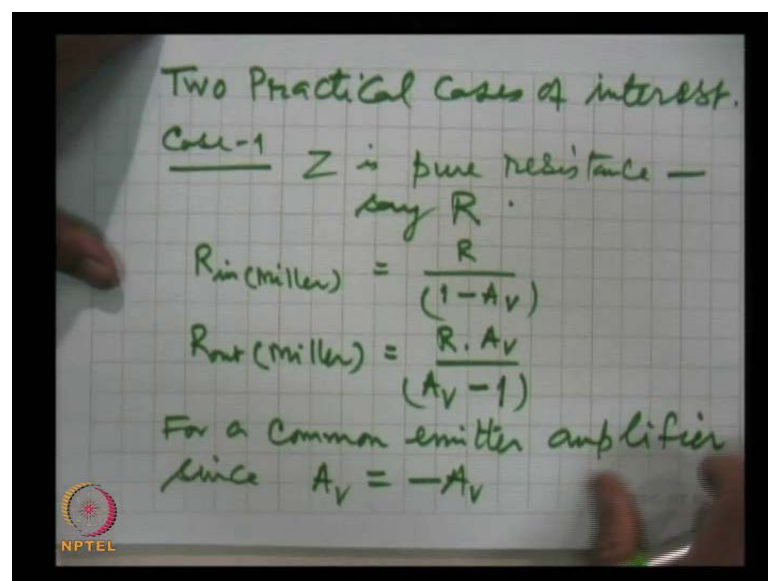 Two Practical Cases of interest.
Case-1 Z is pure resistance —
say R.
R_in (Miller) = R / (1 - A_V)
R_out (Miller) = R. A_V / (A_V - 1)
For a Common emitter amplifier
since A_V = -A_V
NPTEL